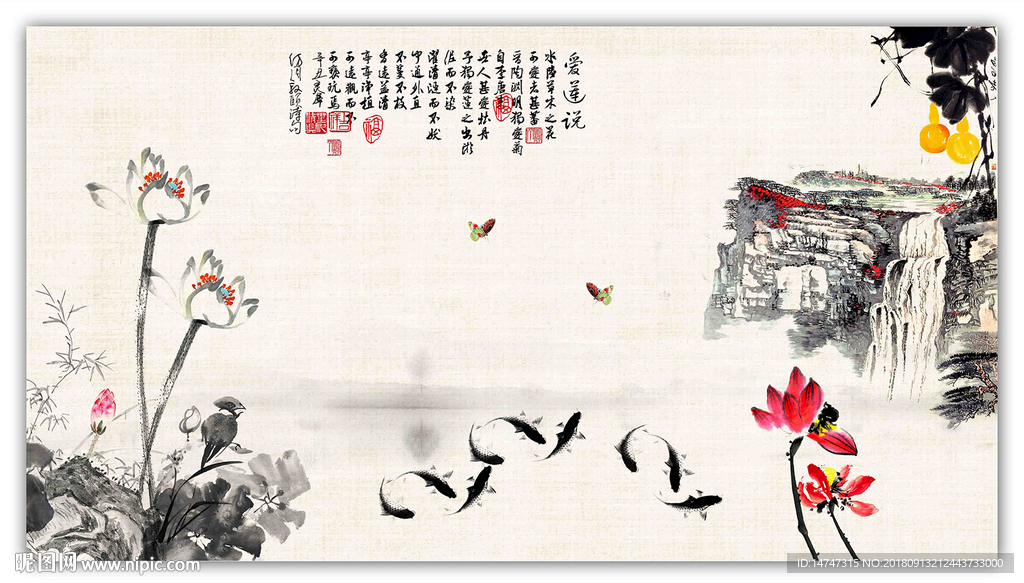 愛蓮說
水陸草木之花
可愛者甚蕃
晉陶淵明獨愛菊
自李唐來
世人甚愛牡丹
予獨愛蓮之出淤
泥而不染
濯清漣而不妖
中通外直
不蔓不枝
香遠益清
亭亭淨植
可遠觀而不
可褻玩焉
昵图网 www.nipic.com
ID:14747315 NO:20180913212443733000